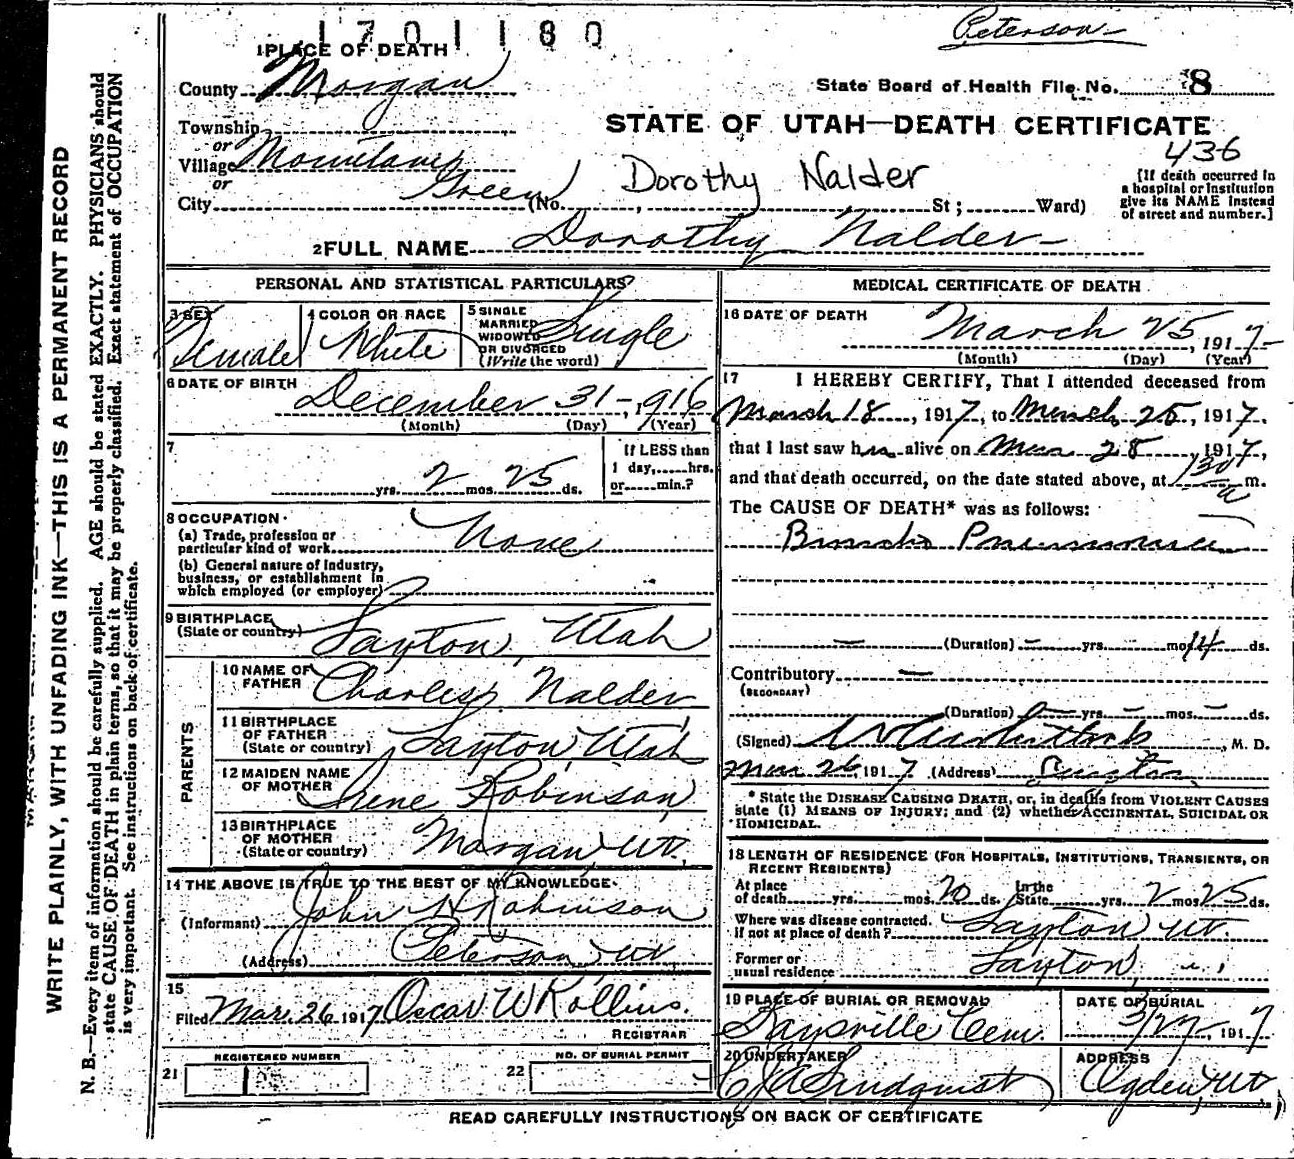 Peterson
1701180
1 PLACE OF DEATH
County Morgan
State Board of Health File No. 8
Township
or
Village Mountain
Green
or
City (No. , St ; Ward)
STATE OF UTAH—DEATH CERTIFICATE
436
Dorothy Nalder
[If death occurred in
a hospital or institution
give its NAME instead
of street and number.]
2 FULL NAME Dorothy Nalder
PERSONAL AND STATISTICAL PARTICULARS
3 SEX Female
4 COLOR OR RACE White
5 SINGLE
MARRIED
WIDOWED
OR DIVORCED
(Write the word) Single
6 DATE OF BIRTH December 31, 1916
(Month) (Day) (Year)
7
yrs. 2 mos. 25 ds.
If LESS than
1 day, hrs.
or min.?
8 OCCUPATION
(a) Trade, profession or
particular kind of work None
(b) General nature of Industry,
business, or establishment in
which employed (or employer)
9 BIRTHPLACE
(State or country) Layton, Utah
PARENTS
10 NAME OF
FATHER Charles Nalder
11 BIRTHPLACE
OF FATHER
(State or country) Layton, Utah
12 MAIDEN NAME
OF MOTHER Irene Robinson
13 BIRTHPLACE
OF MOTHER
(State or country) Morgan, Ut.
14 THE ABOVE IS TRUE TO THE BEST OF MY KNOWLEDGE
(Informant) John W Robinson
(Address) Peterson Ut.
15
Filed Mar. 26, 1917 Oscar W Rollins.
REGISTRAR
21 REGISTERED NUMBER
22 NO. OF BURIAL PERMIT
MEDICAL CERTIFICATE OF DEATH
16 DATE OF DEATH
March 25, 1917
(Month) (Day) (Year)
17 I HEREBY CERTIFY, That I attended deceased from
March 18, 1917, to March 25, 1917,
that I last saw her alive on Mar 28, 1917,
and that death occurred, on the date stated above, at 130 a m.
The CAUSE OF DEATH* was as follows:
Broncho Pneumonia
(Duration) yrs. mos. 14 ds.
Contributory
(SECONDARY)
(Duration) yrs. mos. ds.
(Signed) , M. D.
Mar 26, 1917 (Address)
* State the DISEASE CAUSING DEATH, or, in deaths from VIOLENT CAUSES
state (1) MEANS OF INJURY; and (2) whether ACCIDENTAL, SUICIDAL OR
HOMICIDAL.
18 LENGTH OF RESIDENCE (FOR HOSPITALS, INSTITUTIONS, TRANSIENTS, OR
RECENT RESIDENTS)
At place
of death yrs. mos. 20 ds.
In the
State yrs. 2 mos. 25 ds.
Where was disease contracted,
if not at place of death? Layton Ut.
Former or
usual residence Layton,
19 PLACE OF BURIAL OR REMOVAL
Kaysville Cem.
DATE OF BURIAL
3/27, 1917
20 UNDERTAKER
Lindquist
ADDRESS
Ogden, Ut
READ CAREFULLY INSTRUCTIONS ON BACK OF CERTIFICATE
WRITE PLAINLY, WITH UNFADING INK—THIS IS A PERMANENT RECORD
N. B.—Every item of information should be carefully supplied. AGE should be stated EXACTLY. PHYSICIANS should
state CAUSE OF DEATH in plain terms, so that it may be properly classified. Exact statement of OCCUPATION
is very important. See instructions on back of certificate.